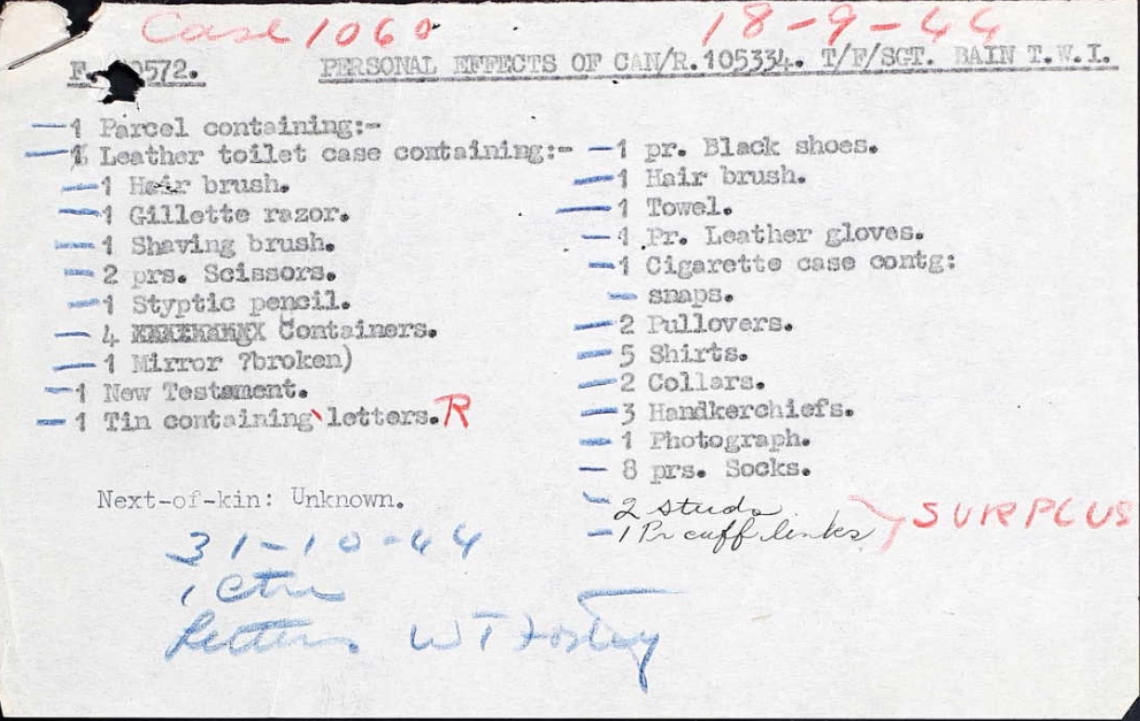 Case 1060
18-9-44
F. 0572.
PERSONAL EFFECTS OF CAN/R.105334. T/F/SGT. BAIN T.W.I.
1 Parcel containing:-
1 Leather toilet case containing:-
1 Hair brush.
1 Gillette razor.
1 Shaving brush.
2 prs. Scissors.
1 Styptic pencil.
4 Containers.
1 Mirror ?broken)
1 New Testament.
1 Tin containing letters. R
Next-of-kin: Unknown.
1 pr. Black shoes.
1 Hair brush.
1 Towel.
1 Pr. Leather gloves.
1 Cigarette case contg:
snaps.
2 Pullovers.
5 Shirts.
2 Collars.
3 Handkerchiefs.
1 Photograph.
8 prs. Socks.
2 studs
1 Pr cuff links
SURPLUS
31-10-44
1 Ctn
Letters W T